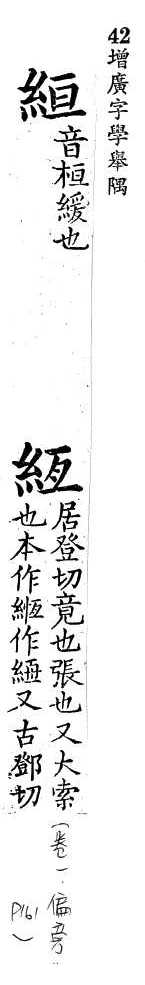 42增廣字學舉隅
絙 音桓緩也
縆 居登切竟也張也又大索
也本作緪作縆又古鄧切
(卷一偏旁
P161)